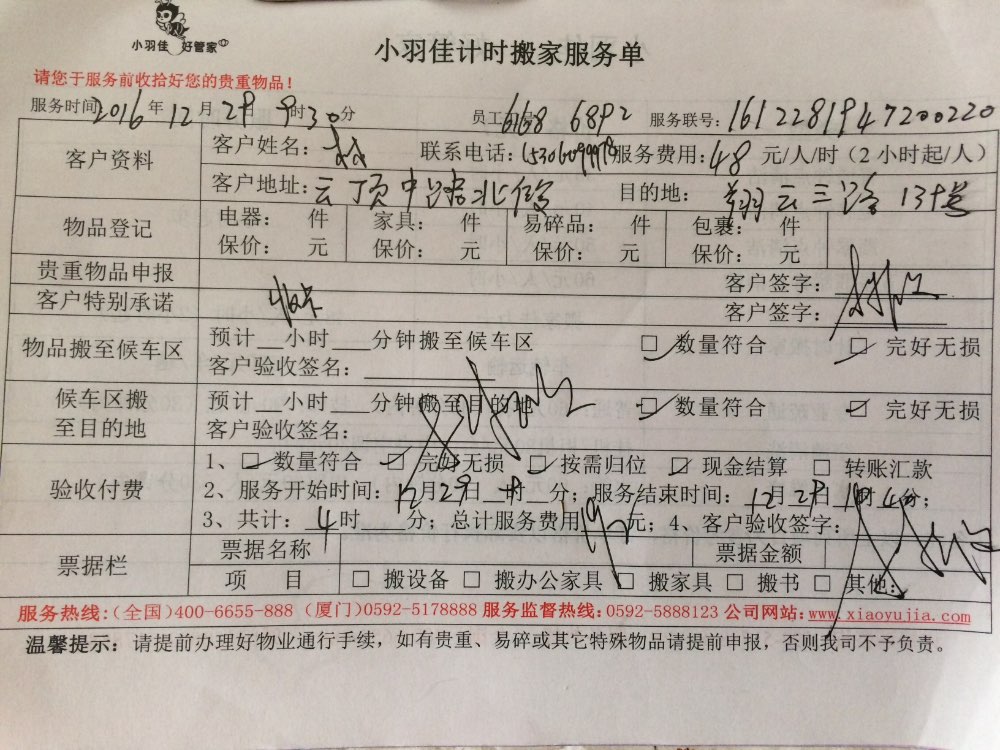 小羽佳 好管家
小羽佳计时搬家服务单
请您于服务前收拾好您的贵重物品！
服务时间 2016 年 12 月 29 日 9 时 30 分 员工工号: 6168 6892 服务联号: 1612281947200220
客户资料 客户姓名: 联系电话: 服务费用: 48 元/人/时（2 小时起/人）
客户地址: 云顶中路北 目的地: 翔云三路 13号
物品登记 电器: 件 家具: 件 易碎品: 件 包裹: 件
保价: 元 保价: 元 保价: 元 保价: 元
贵重物品申报 客户签字:
客户特别承诺 客户签字:
物品搬至候车区 预计__小时___分钟搬至候车区 □ 数量符合 □ 完好无损
客户验收签名:
候车区搬至目的地 预计__小时___分钟搬至目的地 □ 数量符合 □ 完好无损
客户验收签名:
验收付费 1、□ 数量符合 □ 完好无损 □ 按需归位 □ 现金结算 □ 转账汇款
2、服务开始时间: 12 月 29 日 时 分; 服务结束时间: 12 月 29 日 时 分;
3、共计: 4 时 分; 总计服务费用 192 元; 4、客户验收签字:
票据栏 票据名称 票据金额
项 目 □ 搬设备 □ 搬办公家具 □ 搬家具 □ 搬书 □ 其他:
服务热线:(全国)400-6655-888 (厦门)0592-5178888 服务监督热线:0592-5888123 公司网站: www.xiaoyujia.com
温馨提示：请提前办理好物业通行手续，如有贵重、易碎或其它特殊物品请提前申报，否则我司不予负责。